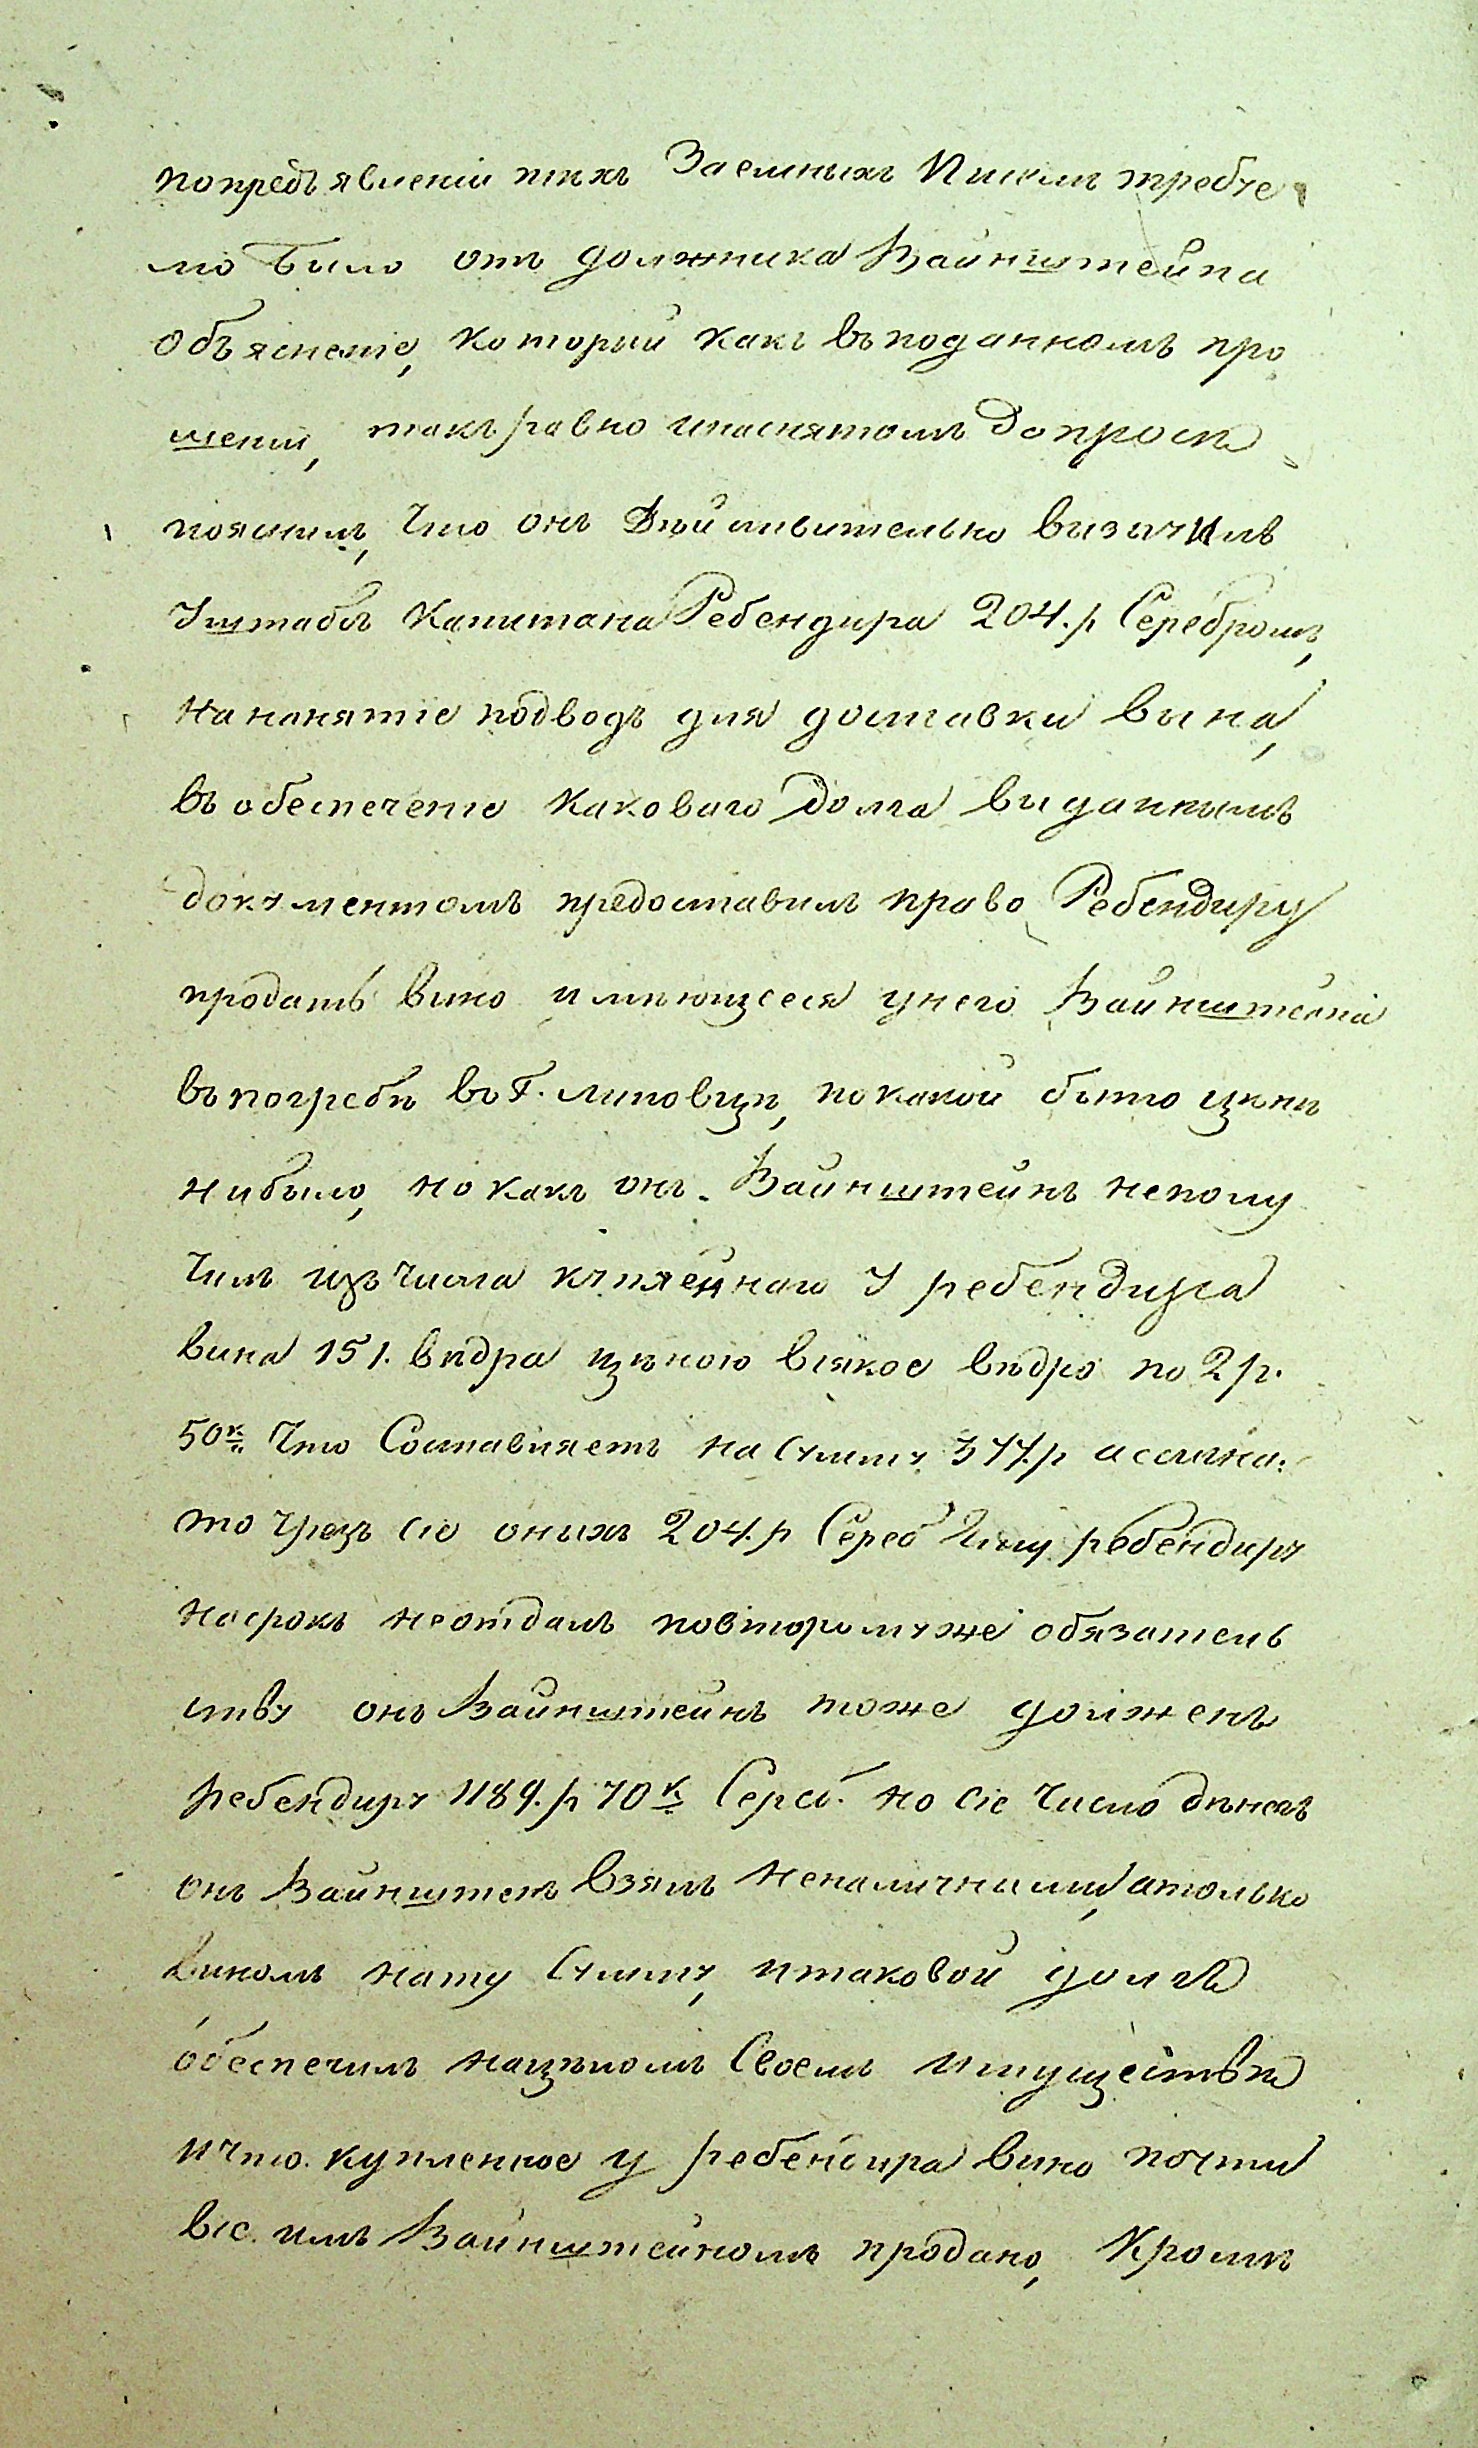 попредъявленіи тѣхъ Заемныхъ Писемъ требуе
мо было отъ должника Вайнштейна
Объясненіе, который какъ въ поданномъ про
шеніи, такъ равно инаснятомъ допросѣ
пояснилъ, что онъ Дѣйствительно вызычилъ
Уштабъ Капитана Ребендира 204.р Серебромъ,
На нанятіе подводъ для доставки вина,
въ обеспеченіе каковаго долга выданнымъ
документомъ предоставилъ право Ребендиру
продать вино имѣющееся унего Вайнштейна
въ погребѣ въ Г. Липовцѣ, по какой бы то цѣнѣ
нибыло, но какъ онъ Вайнштейнъ неполу
чилъ изъ числа купленнаго У ребендира
вина 151. вѣдра цѣною всякое вѣдро по 2 р.
50 к. Что Составляетъ на Сумму 377.р ассигна.
то чрезъ сіе оныхъ 204.р Сереб Ему ребендиру
насрокъ неотдалъ повторомуже обязатель
ству онъ Вайнштейнъ тоже долженъ
ребендиру 1189.р 70 к Сереб. но сіе Число дѣнегъ
онъ Вайнштенъ взялъ неналичными, атолько
виномъ нату Сумму, итаковой долгъ
обеспечилъ нацѣломъ Своемъ имуществѣ
ичто купленное у ребендира вино почти
все имъ Вайнштейномъ продано, Кромѣ